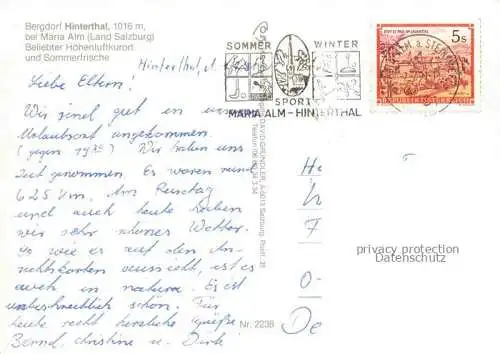 Bergdorf Hinterthal, 1016 m,
bei Maria Alm (Land Salzburg)
Beliebter Höhenluftkurort
und Sommerfrische
Hinterthal, d.
Liebe Eltern!
Wir sind gut in
Urlaubsort angekommen.
(gegen 19 30) Wir haben uns
Zeit genommen. Es waren rund
625 km. Am Reisetag
und auch heute haben
wir sehr schönes Wetter.
So wie es auf den An-
sichtskarten aussieht, ist es
auch in natura. Es ist
unbeschreiblich schön. Für
heute recht herzliche Grüße
Bernd, Christine u. Dirk
SOMMER WINTER
SPORT
MARIA ALM - HINTERTHAL
5s
REPUBLIK ÖSTERREICH
DAVID GRÜNDLER, A-5013 Salzburg, Postf. 21
Nr. 2238
privacy protection
Datenschutz